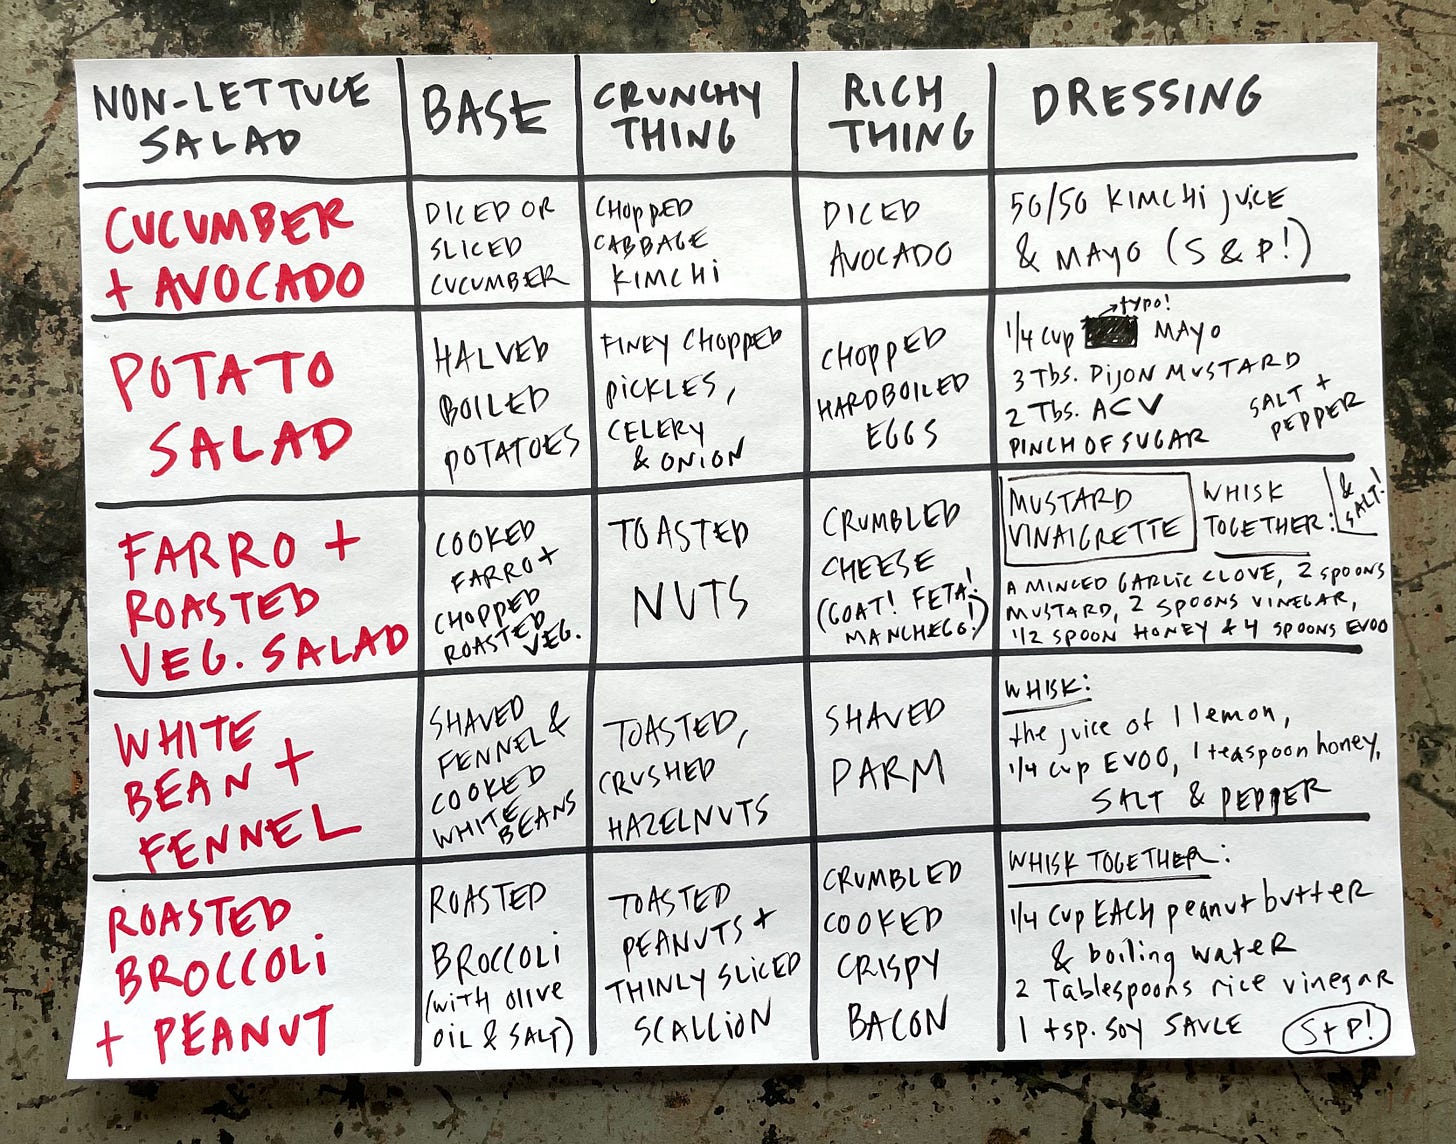 NON-LETTUCE
SALAD
BASE
CRUNCHY
THING
RICH
THING
DRESSING
CUCUMBER
+ AVOCADO
DICED OR
SLICED
CUCUMBER
CHOPPED
CABBAGE
KIMCHI
DICED
AVOCADO
50/50 KIMCHI JUICE
& MAYO (S & P!)
POTATO
SALAD
HALVED
BOILED
POTATOES
FINEY CHOPPED
PICKLES,
CELERY
& ONION
CHOPPED
HARDBOILED
EGGS
typo!
1/4 cup MAYO
3 Tbs. DIJON MUSTARD
2 Tbs. ACV
PINCH OF SUGAR
SALT +
PEPPER
FARRO +
ROASTED
VEG. SALAD
COOKED
FARRO +
CHOPPED
ROASTED
VEG.
TOASTED
NUTS
CRUMBLED
CHEESE
(GOAT! FETA!
MANCHEGO!)
MUSTARD
VINAIGRETTE
WHISK
TOGETHER:
&
SALT!
A MINCED GARLIC CLOVE, 2 SPOONS
MUSTARD, 2 SPOONS VINEGAR,
1/2 SPOON HONEY & 4 SPOONS EVOO
WHITE
BEAN +
FENNEL
SHAVED
FENNEL &
COOKED
WHITE
BEANS
TOASTED,
CRUSHED
HAZELNUTS
SHAVED
PARM
WHISK:
the juice of 1 lemon,
1/4 cup EVOO, 1 teaspoon honey,
SALT & PEPPER
ROASTED
BROCCOLI
+ PEANUT
ROASTED
BROCCOLI
(with olive
OIL & SALT)
TOASTED
PEANUTS +
THINLY SLICED
SCALLION
CRUMBLED
COOKED
CRISPY
BACON
WHISK TOGETHER:
1/4 cup EACH peanut butter
& boiling water
2 Tablespoons rice vinegar
1 tsp. SOY SAUCE
S+P!